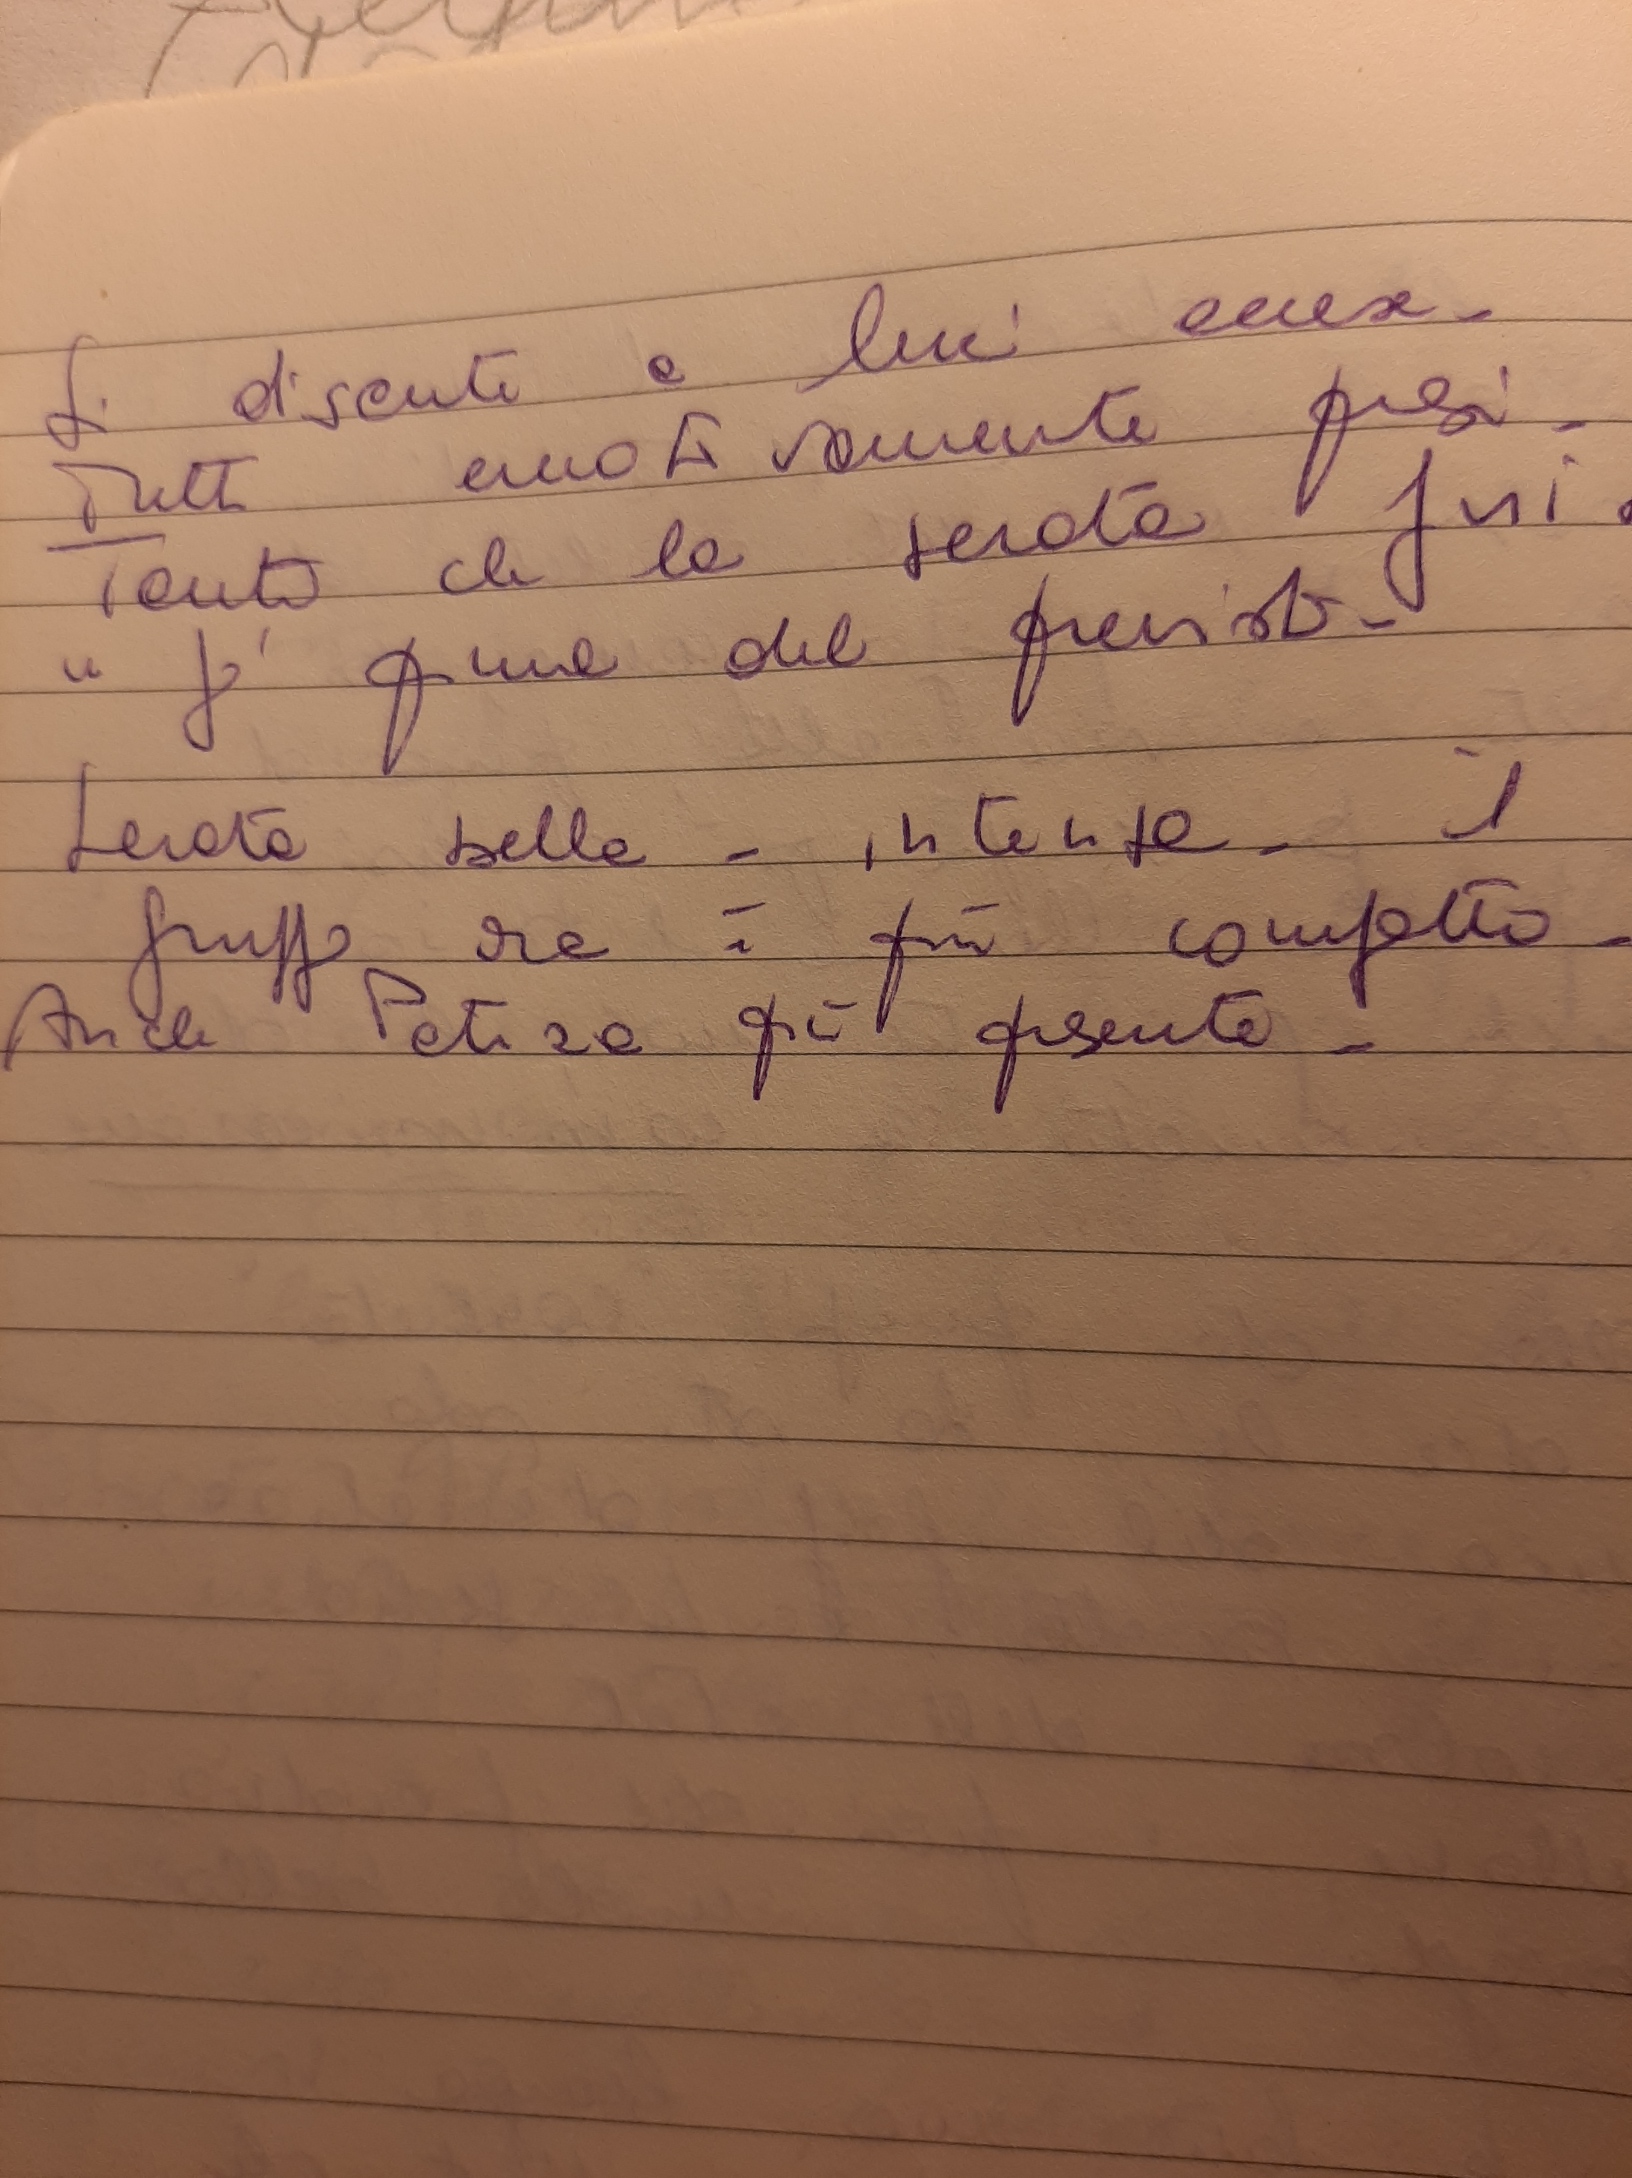 Si discute e luci accese -
Tutti emotivamente presi -
Tanto che la serata fini
prima del previsto -
Serata bella - intensa - il
gruppo ora è più compatto -
Anche Patizia più presente -